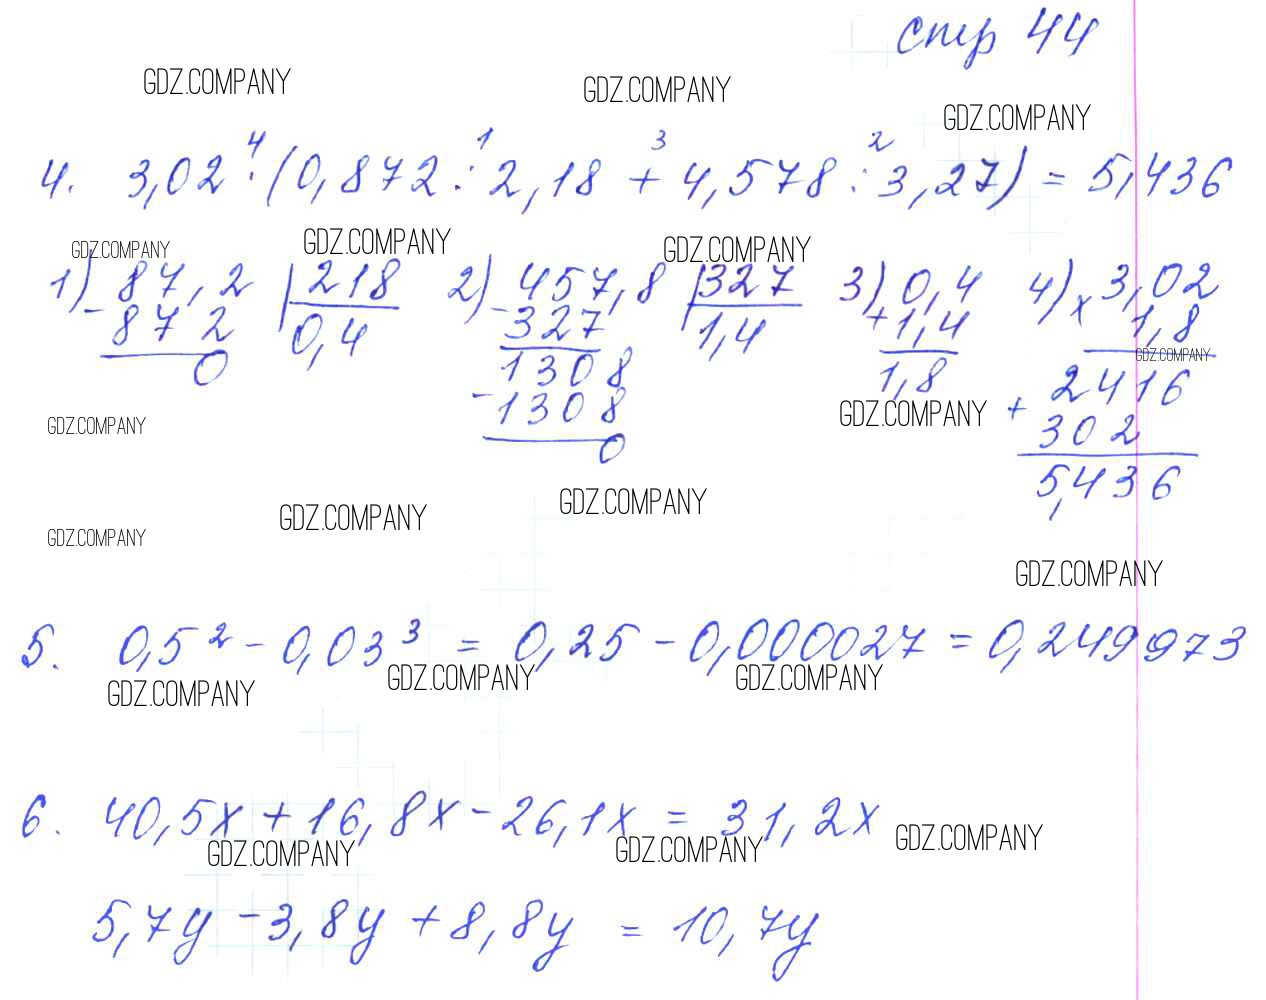 стр 44
GDZ.COMPANY
GDZ.COMPANY
GDZ.COMPANY
4 1 3 2
4. 3,02 · (0,872 : 2,18 + 4,578 : 3,27) = 5,436
GDZ.COMPANY
GDZ.COMPANY
GDZ.COMPANY
1) 87,2 | 218 2) 457,8 | 327 3) 0,4 4) 3,02
- 872 0,4 - 327 1,4 + 1,4 x 1,8
0 1308 1,8 2416
GDZ.COMPANY
GDZ.COMPANY
GDZ.COMPANY
- 1308 + 302
0 5,436
GDZ.COMPANY
GDZ.COMPANY
GDZ.COMPANY
GDZ.COMPANY
5. 0,5² - 0,03³ = 0,25 - 0,000027 = 0,249973
GDZ.COMPANY
GDZ.COMPANY
GDZ.COMPANY
6. 40,5x + 16,8x - 26,1x = 31,2x
GDZ.COMPANY
GDZ.COMPANY
GDZ.COMPANY
5,7y - 3,8y + 8,8y = 10,7y